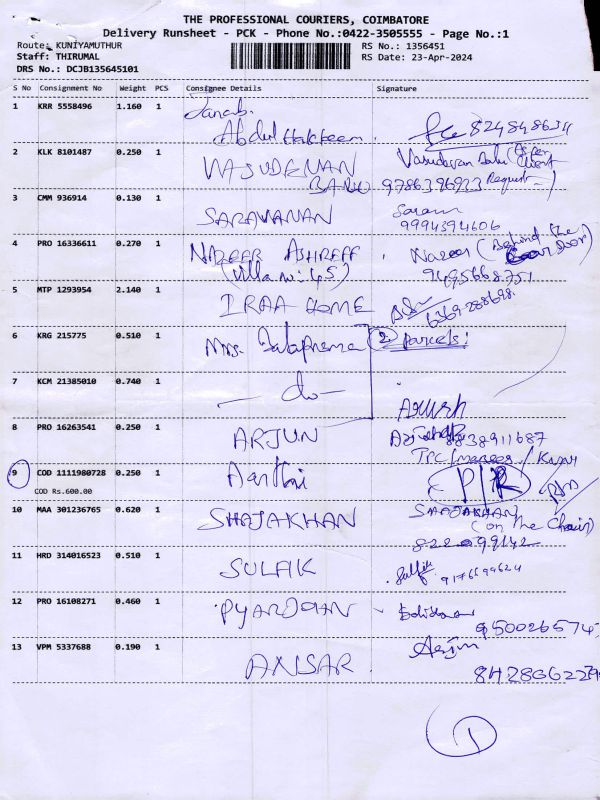 THE PROFESSIONAL COURIERS, COIMBATORE
Delivery Runsheet - PCK - Phone No.:0422-3505555 - Page No.:1
Route: KUNIYAMUTHUR
RS No.: 1356451
Staff: THIRUMAL
RS Date: 23-Apr-2024
DRS No.: DCJB135645101
S No Consignment No Weight PCS Consignee Details Signature
1 KRR 5558496 1.160 1 Janab.
Abdul Hakkeem. 8248486311
2 KLK 8101487 0.250 1 VASUDEVAN Vasudevan Babu (As per Client
BABU 9786396933 Request)
3 CMM 936914 0.130 1 SARAVANAN
9994394606
4 PRO 16336611 0.270 1 NAZEER ASHREFF Nazeer (Behind the Door)
(Villa No: 45) 9495668751
5 MTP 1293954 2.140 1 IRAA HOME 6369288698
6 KRG 215775 0.510 1 Mrs. (2) parcels:
7 KCM 21385010 0.740 1 - do -
8 PRO 16263541 0.250 1 ARJUN 8838911687
9 COD 1111980728 0.250 1 Aarthi P/R
COD Rs.600.00
10 MAA 301236765 0.620 1 SHAJAKHAN SHAJAKHAN
(on The Chair)
11 HRD 314016523 0.510 1 SULAIK 9176699624
12 PRO 16108271 0.460 1 PYARIJOHN
9500265747
13 VPM 5337688 0.190 1 ANSAR.
1